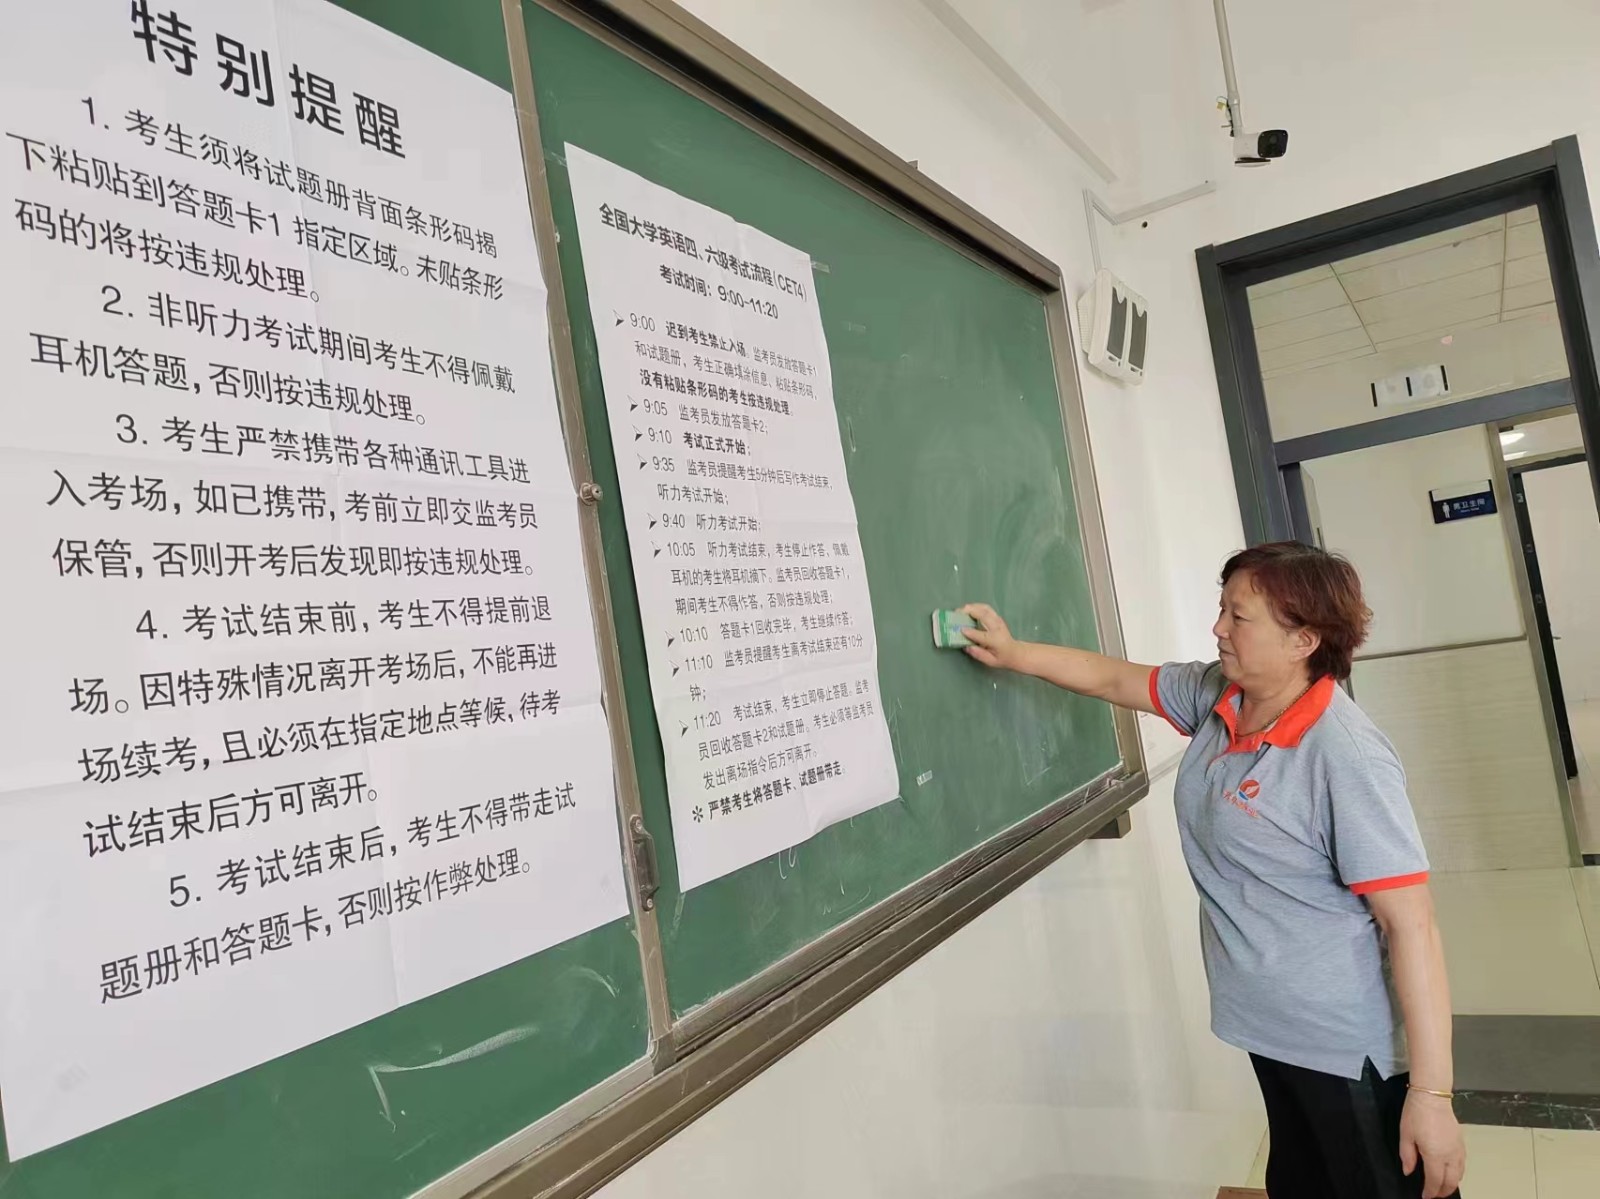 特别提醒
1. 考生须将试题册背面条形码揭
下粘贴到答题卡1 指定区域。未贴条形
码的将按违规处理。
2. 非听力考试期间考生不得佩戴
耳机答题，否则按违规处理。
3. 考生严禁携带各种通讯工具进
入考场，如已携带，考前立即交监考员
保管，否则开考后发现即按违规处理。
4. 考试结束前，考生不得提前退
场。因特殊情况离开考场后，不能再进
场续考，且必须在指定地点等候，待考
试结束后方可离开。
5. 考试结束后，考生不得带走试
题册和答题卡，否则按作弊处理。
全国大学英语四、六级考试流程（CET4）
考试时间：9:00-11:20
➢ 9:00 迟到考生禁止入场。监考员发放答题卡1
和试题册，考生正确填涂信息、粘贴条形码，
没有粘贴条形码的考生按违规处理。
➢ 9:05 监考员发放答题卡2；
➢ 9:10 考试正式开始；
➢ 9:35 监考员提醒考生5分钟后写作考试结束，
听力考试开始；
➢ 9:40 听力考试开始：
➢ 10:05 听力考试结束，考生停止作答，佩戴
耳机的考生将耳机摘下。监考员回收答题卡1，
期间考生不得作答，否则按违规处理；
➢ 10:10 答题卡1回收完毕，考生继续作答；
➢ 11:10 监考员提醒考生离考试结束还有10分
钟；
➢ 11:20 考试结束，考生立即停止答题。监考
员回收答题卡2和试题册。考生必须等监考员
发出离场指令后方可离开。
＊ 严禁考生将答题卡、试题册带走。
男卫生间